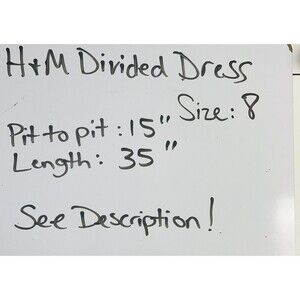 H+M Divided Dress
Size: 8
Pit to pit: 15"
Length: 35"
See Description!